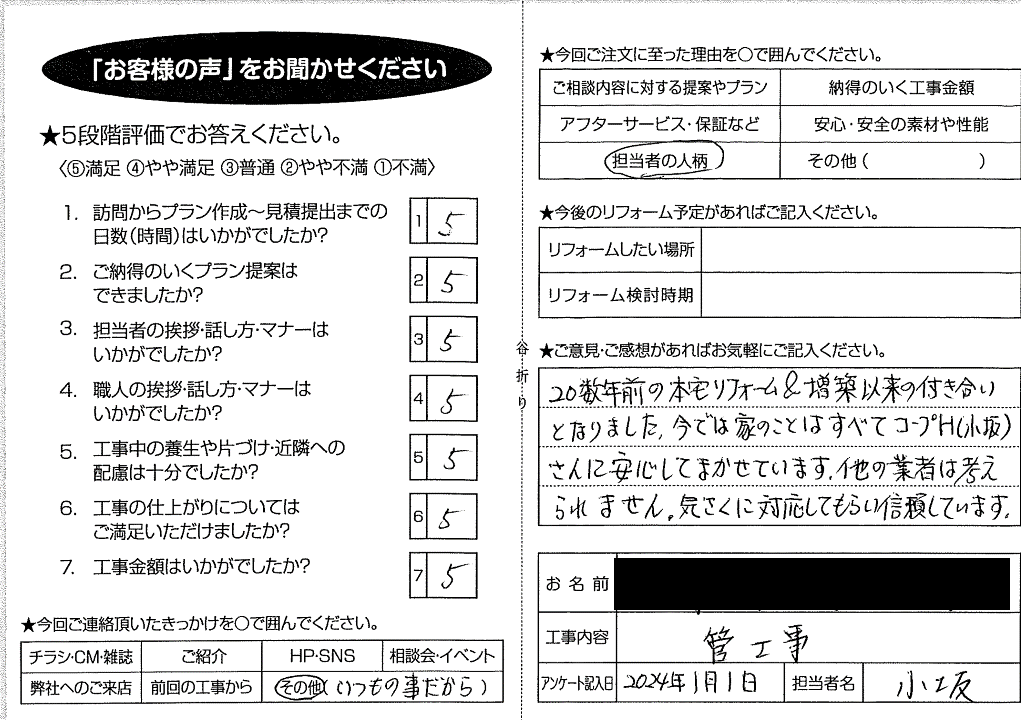 「お客様の声」をお聞かせください
★5段階評価でお答えください。
〈⑤満足 ④やや満足 ③普通 ②やや不満 ①不満〉
1. 訪問からプラン作成～見積提出までの
日数（時間）はいかがでしたか？
1 5
2. ご納得のいくプラン提案は
できましたか？
2 5
3. 担当者の挨拶・話し方・マナーは
いかがでしたか？
3 5
4. 職人の挨拶・話し方・マナーは
いかがでしたか？
4 5
5. 工事中の養生や片づけ・近隣への
配慮は十分でしたか？
5 5
6. 工事の仕上がりについては
ご満足いただけましたか？
6 5
7. 工事金額はいかがでしたか？
7 5
★今回ご連絡頂いたきっかけを○で囲んでください。
チラシ・CM・雑誌 ご紹介 HP・SNS 相談会・イベント
弊社へのご来店 前回の工事から その他（いつもの事だから）
谷折り
★今回ご注文に至った理由を○で囲んでください。
ご相談内容に対する提案やプラン 納得のいく工事金額
アフターサービス・保証など 安心・安全の素材や性能
担当者の人柄 その他（ ）
★今後のリフォーム予定があればご記入ください。
リフォームしたい場所
リフォーム検討時期
★ご意見・ご感想があればお気軽にご記入ください。
20数年前の本宅リフォーム&増築以来の付き合い
となりました。今では家のことはすべてコープH(小坂)
さんに安心してまかせています。他の業者は考え
られません。気さくに対応してもらい信頼しています。
お名前
工事内容 管工事
アンケート記入日 2024年1月1日 担当者名 小坂